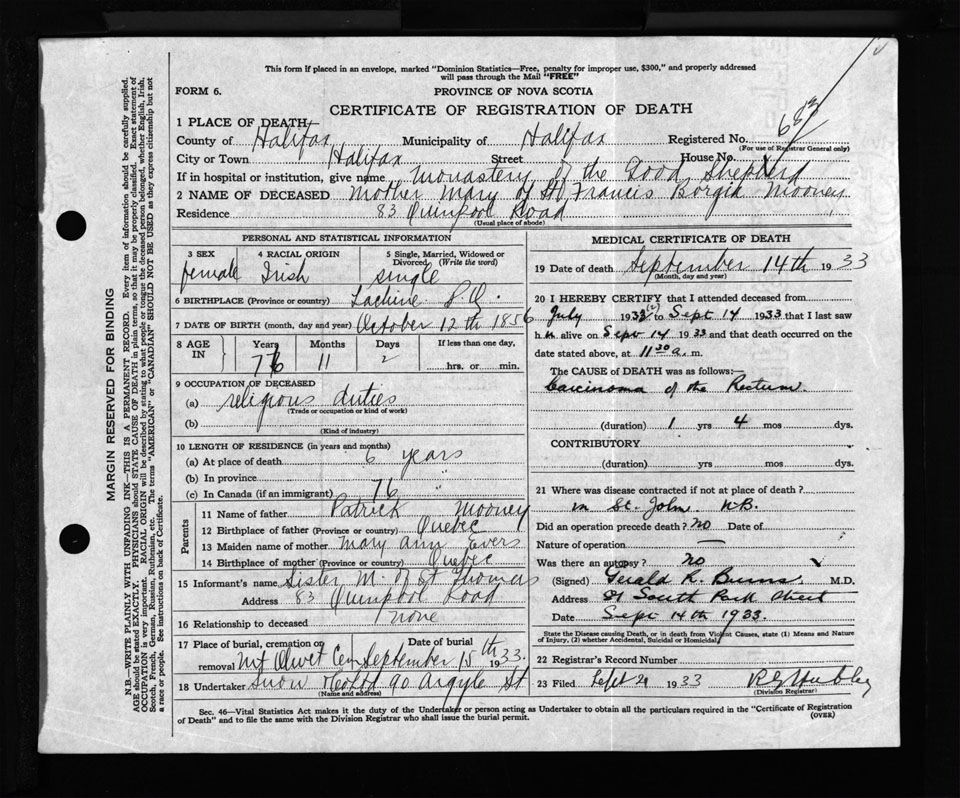 This form if placed in an envelope, marked "Dominion Statistics—Free, penalty for improper use, $300," and properly addressed
will pass through the Mail "FREE"
FORM 6.
PROVINCE OF NOVA SCOTIA
CERTIFICATE OF REGISTRATION OF DEATH
1 PLACE OF DEATH
County of Halifax Municipality of Halifax Registered No.
(For use of Registrar General only)
City or Town Halifax Street House No.
If in hospital or institution, give name Monastery of the Good Shepherd
2 NAME OF DECEASED Mother Mary of St Francis Borgia Mooney
Residence 83 Quinpool Road
(Usual place of abode)
PERSONAL AND STATISTICAL INFORMATION
3 SEX 4 RACIAL ORIGIN 5 Single, Married, Widowed or Divorced (Write the word)
female Irish single
6 BIRTHPLACE (Province or country) Lachine P.Q.
7 DATE OF BIRTH (month, day and year) October 12th 1856
8 AGE IN Years Months Days If less than one day,
76 11 2 hrs. or min.
9 OCCUPATION OF DECEASED
(a) religious duties
(Trade or occupation or kind of work)
(b)
(Kind of industry)
10 LENGTH OF RESIDENCE (in years and months)
(a) At place of death 6 years
(b) In province "
(c) In Canada (if an immigrant) 76
Parents
11 Name of father Patrick Mooney
12 Birthplace of father (Province or country) Quebec
13 Maiden name of mother Mary Ann Evers
14 Birthplace of mother (Province or country) Quebec
15 Informant's name Sister M. of St Thomas
Address 83 Quinpool Road
16 Relationship to deceased none
17 Place of burial, cremation or removal Mt Olivet Cem Date of burial September 15th 1933.
18 Undertaker Snow & Co Ltd 90 Argyle St
(Name and address)
MEDICAL CERTIFICATE OF DEATH
19 Date of death September 14th 1933
(Month, day and year)
20 I HEREBY CERTIFY that I attended deceased from
July 1932 (2) to Sept 14 1933 that I last saw
her alive on Sept 14 1933 and that death occurred on the
date stated above, at 11 30 a. m.
The CAUSE of DEATH was as follows:—
Carcinoma of the Rectum.
(duration) 1 yrs 4 mos dys.
CONTRIBUTORY
(duration) yrs. mos. dys.
21 Where was disease contracted if not at place of death?
in St. John N.B.
Did an operation precede death? no Date of
Nature of operation —
Was there an autopsy? no
(Signed) Gerald R. Burns M.D.
Address 81 South Park Street
Date Sept 14th 1933.
State the Disease causing Death, or in death from Violent Causes, state (1) Means and Nature
of Injury, (2) whether Accidental, Suicidal or Homicidal.
22 Registrar's Record Number
23 Filed Sept 21 1933
(Division Registrar)
Sec. 46—Vital Statistics Act makes it the duty of the Undertaker or person acting as Undertaker to obtain all the particulars required in the "Certificate of Registration
of Death" and to file the same with the Division Registrar who shall issue the burial permit.
(OVER)
MARGIN RESERVED FOR BINDING
N.B.—WRITE PLAINLY WITH UNFADING INK—THIS IS A PERMANENT RECORD. Every item of information should be carefully supplied.
AGE should be stated EXACTLY. PHYSICIANS should STATE CAUSE OF DEATH in plain terms, so that it may be properly classified. Exact statement of
OCCUPATION is very important. RACIAL ORIGIN will be described by stating to what people or tongue the deceased person belonged, whether English, Irish,
Scotch, French, German, Russian, Ruthenian, etc. The terms "AMERICAN" or "CANADIAN" SHOULD NOT BE USED as they express citizenship but not
a race or people. See instructions on back of Certificate.